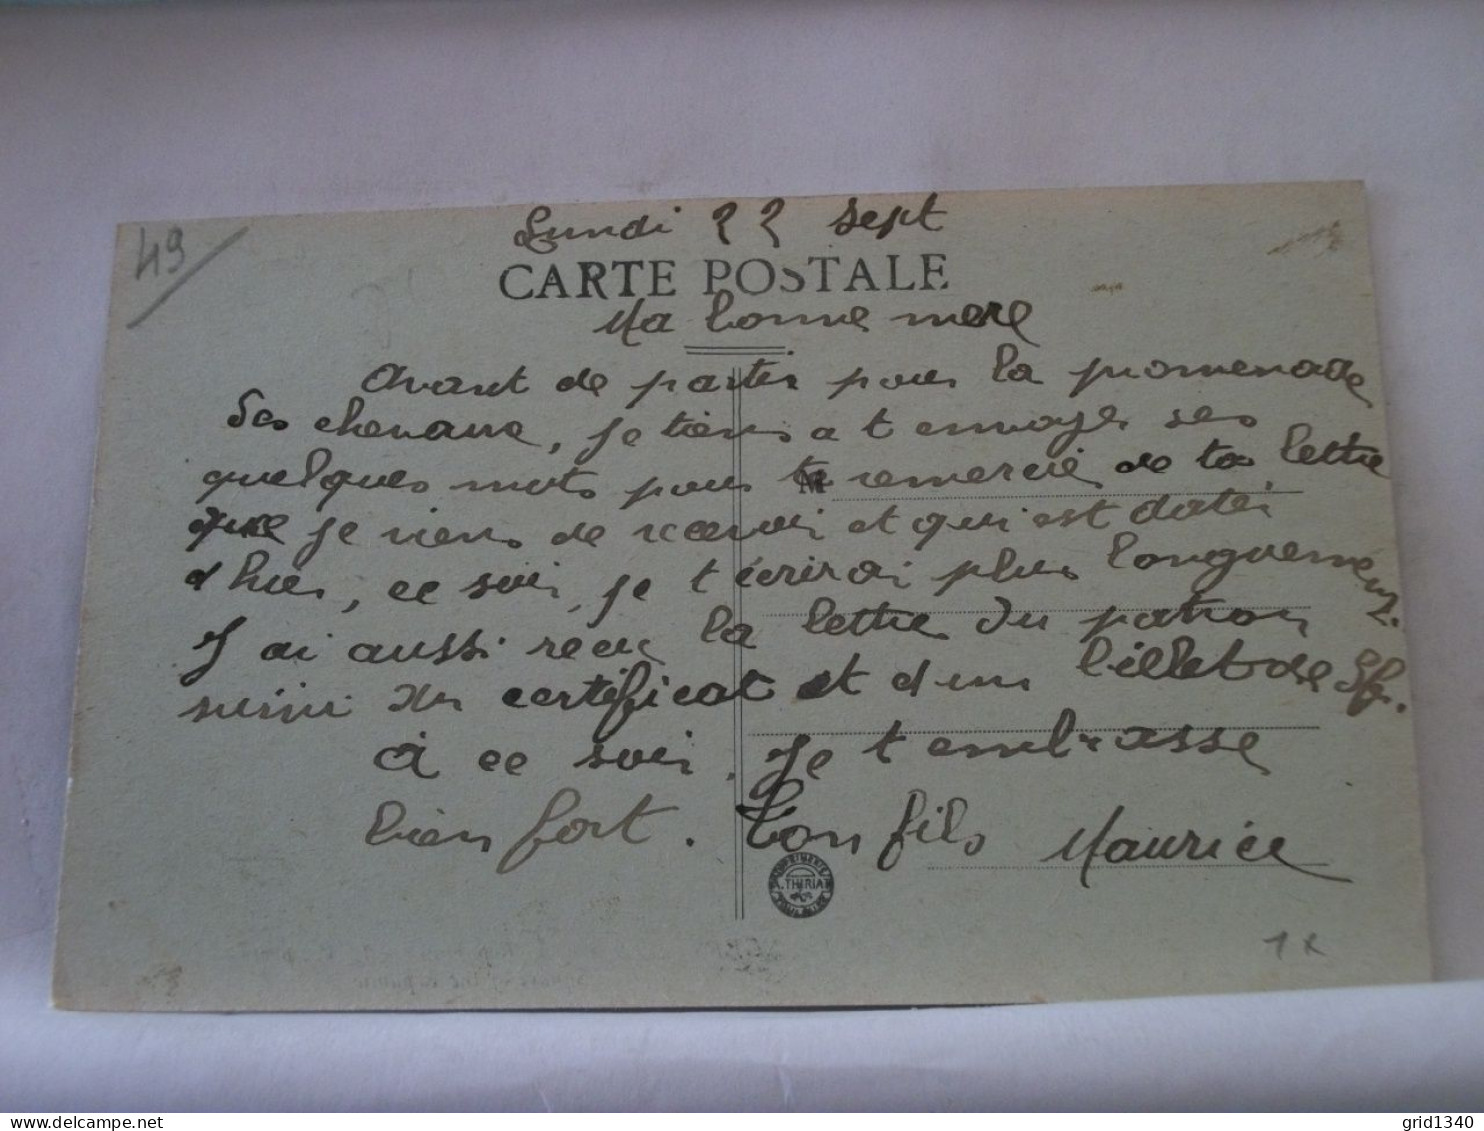 49
Lundi 22 sept
CARTE POSTALE
Ma bonne mere
Avant de partir pour la promenade
des chevaux, je tiens a t envoyer ses
quelques mots pour te remercie de ta lettre
que je viens de recevoir et qui est datée
d hier, ce soir, je t écrirai plus longuement.
J ai aussi recu la lettre du patron
suivi du certificat et d un billet de 5fr.
A ce soir. Je t embrasse
bien fort. Ton fils Maurice
M
A. THIRIA
1 x
delcampe.net
grid1340